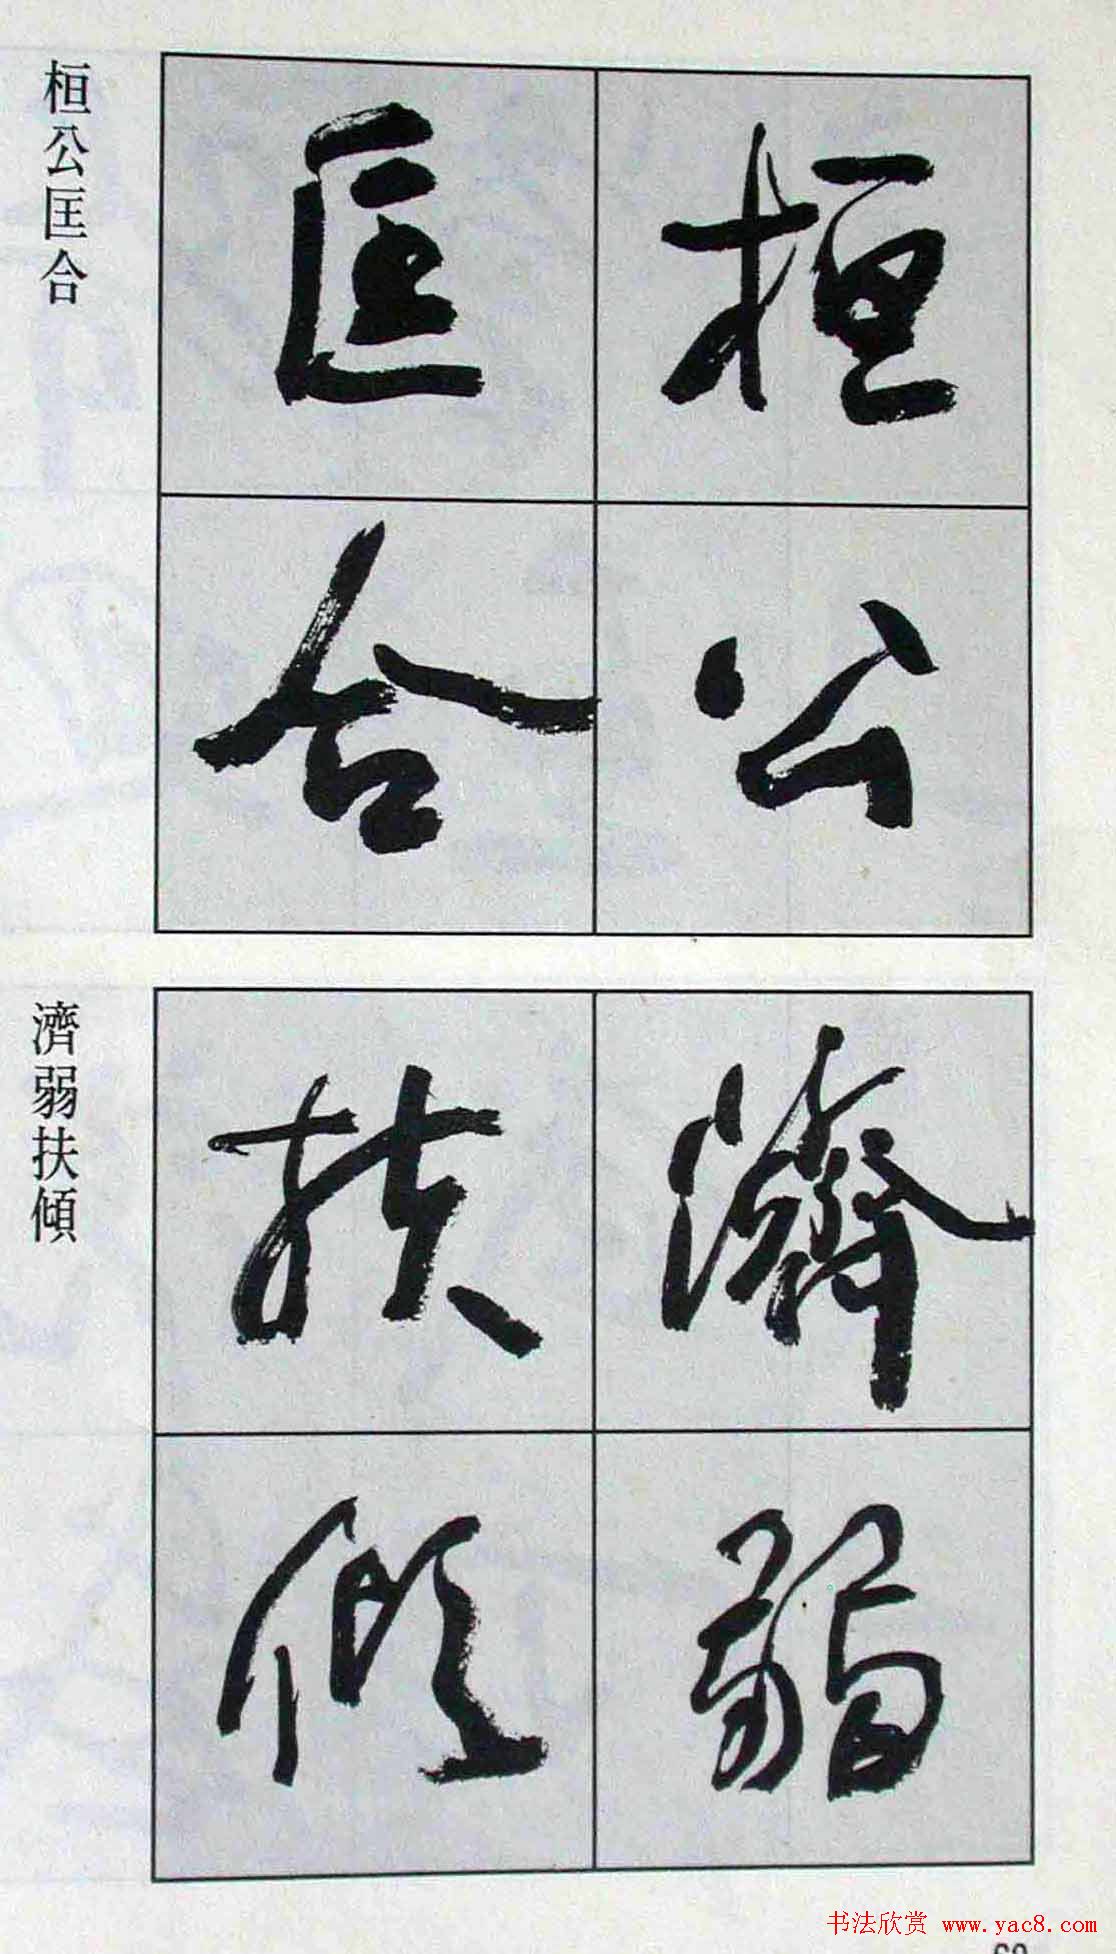 桓公
匡合
桓公匡合
濟弱
扶傾
濟弱扶傾
书法欣赏 www.yac8.com